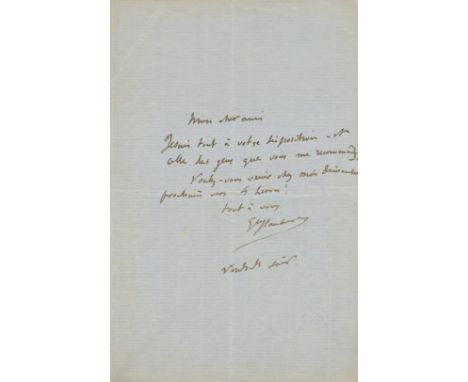 Mon cher ami
Je suis tout à votre disposition et à
celle des gens que vous me recommandez
Voulez-vous venir chez moi dimanche
prochain vers 4 heures?
tout à vous
Gve Flaubert
Vendredi soir.